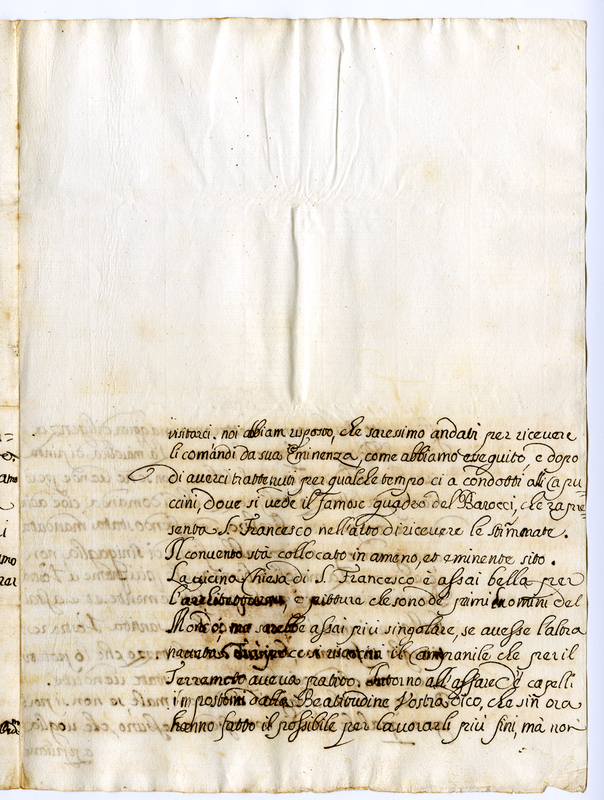 visitarci. noi abbiam risposto, che saressimo andati per ricevere
li comandi da sua Eminenza, come abbiamo eseguito, e dopo
di averci trattenuti per qualche tempo ci a condotti alli Capu=
ccini, dove si vede il famoso quadro del Barocci, che rapre=
senta S. Francesco nell'atto di ricevere le stimmate.
Il convento stà collocato in ameno, et eminente sito.
La vicina chiesa di S. Francesco è assai bella per
l'architettura, e pitture che sono de primi homini del
Mondo, ma sarebbe assai più singolare, se avesse l'altra
il Campanile che per il
Terramoto aveva patito. Intorno all'affare de capelli
impostomi dalla Beatitudine Vostra dico, che sin ora
hanno fatto il possibile per lavorarli più fini, mà non